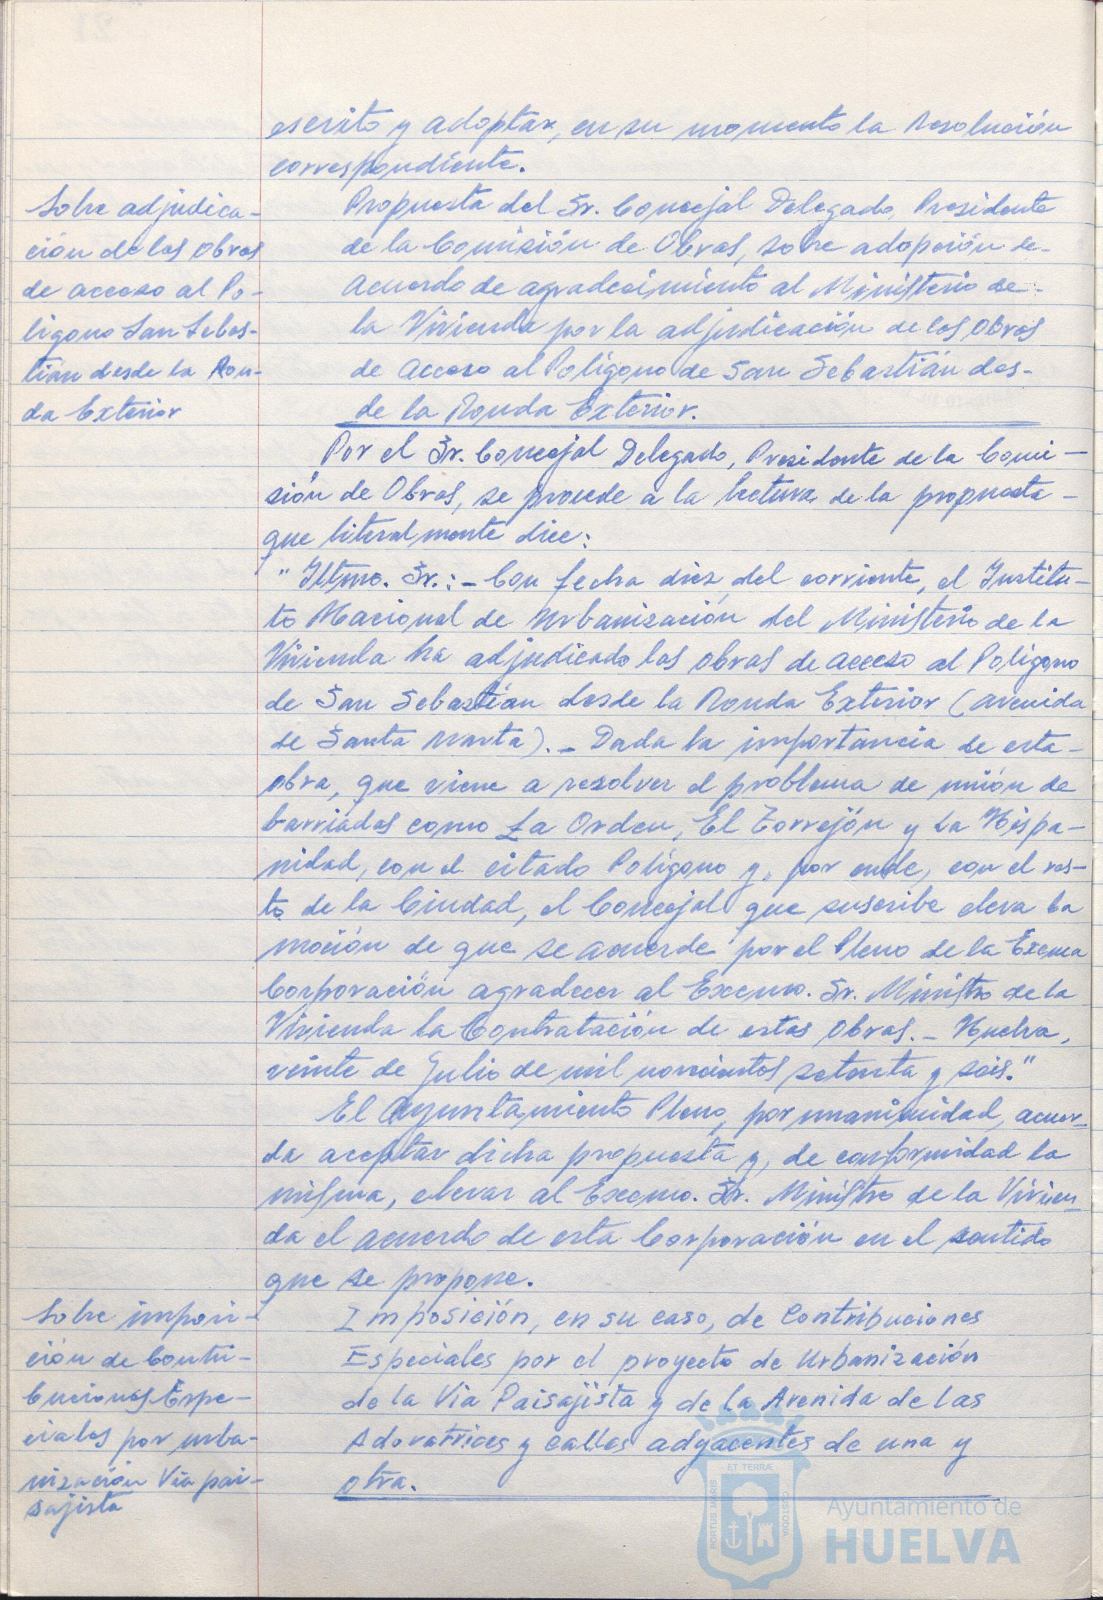 escrito y adoptar, en su momento la Resolución
correspondiente.
Sobre adjudica-
ción de las obras
de acceso al Po-
lígono San Sebas-
tián desde la Ron-
da Exterior
Propuesta del Sr. Concejal Delegado, Presidente
de la Comisión de Obras, sobre adopción de-
acuerdo de agradecimiento al Ministerio de-
la Vivienda por la adjudicación de las Obras
de Acceso al Polígono de San Sebastián des-
de la Ronda Exterior.
Por el Sr. Concejal Delegado, Presidente de la Comi-
sión de Obras, se procede a la lectura de la propuesta-
que literalmente dice:
"Iltmo. Sr.:- Con fecha diez del corriente, el Institu-
to Nacional de Urbanización del Ministerio de la
Vivienda ha adjudicado las obras de acceso al Polígono
de San Sebastián desde la Ronda Exterior (avenida
de Santa Marta).- Dada la importancia de esta-
obra, que viene a resolver el problema de unión de
barriadas como La Orden, El Torrejón y La Hispa-
nidad, con el citado Polígono y, por ende, con el res-
to de la Ciudad, el Concejal que suscribe eleva la
moción de que se acuerde por el Pleno de la Excma
Corporación agradecer al Excmo. Sr. Ministro de la
Vivienda la Contratación de estas Obras.- Huelva,
veinte de Julio de mil novecientos setenta y seis."
El Ayuntamiento Pleno, por unanimidad, acuer-
da aceptar dicha propuesta y, de conformidad la
misma, elevar al Excmo. Sr. Ministro de la Vivien-
da el acuerdo de esta Corporación en el sentido
que se propone.
Sobre imposi-
ción de Contri-
buciones Espe-
ciales por urba-
nización Vía pai-
sajista
Imposición, en su caso, de Contribuciones
Especiales por el proyecto de Urbanización
de la Vía Paisajista y de la Avenida de las
Adoratrices y calles adyacentes de una y
otra.
ET TERRÆ
PORTUS MARIS
CUSTODIA
Ayuntamiento de
HUELVA